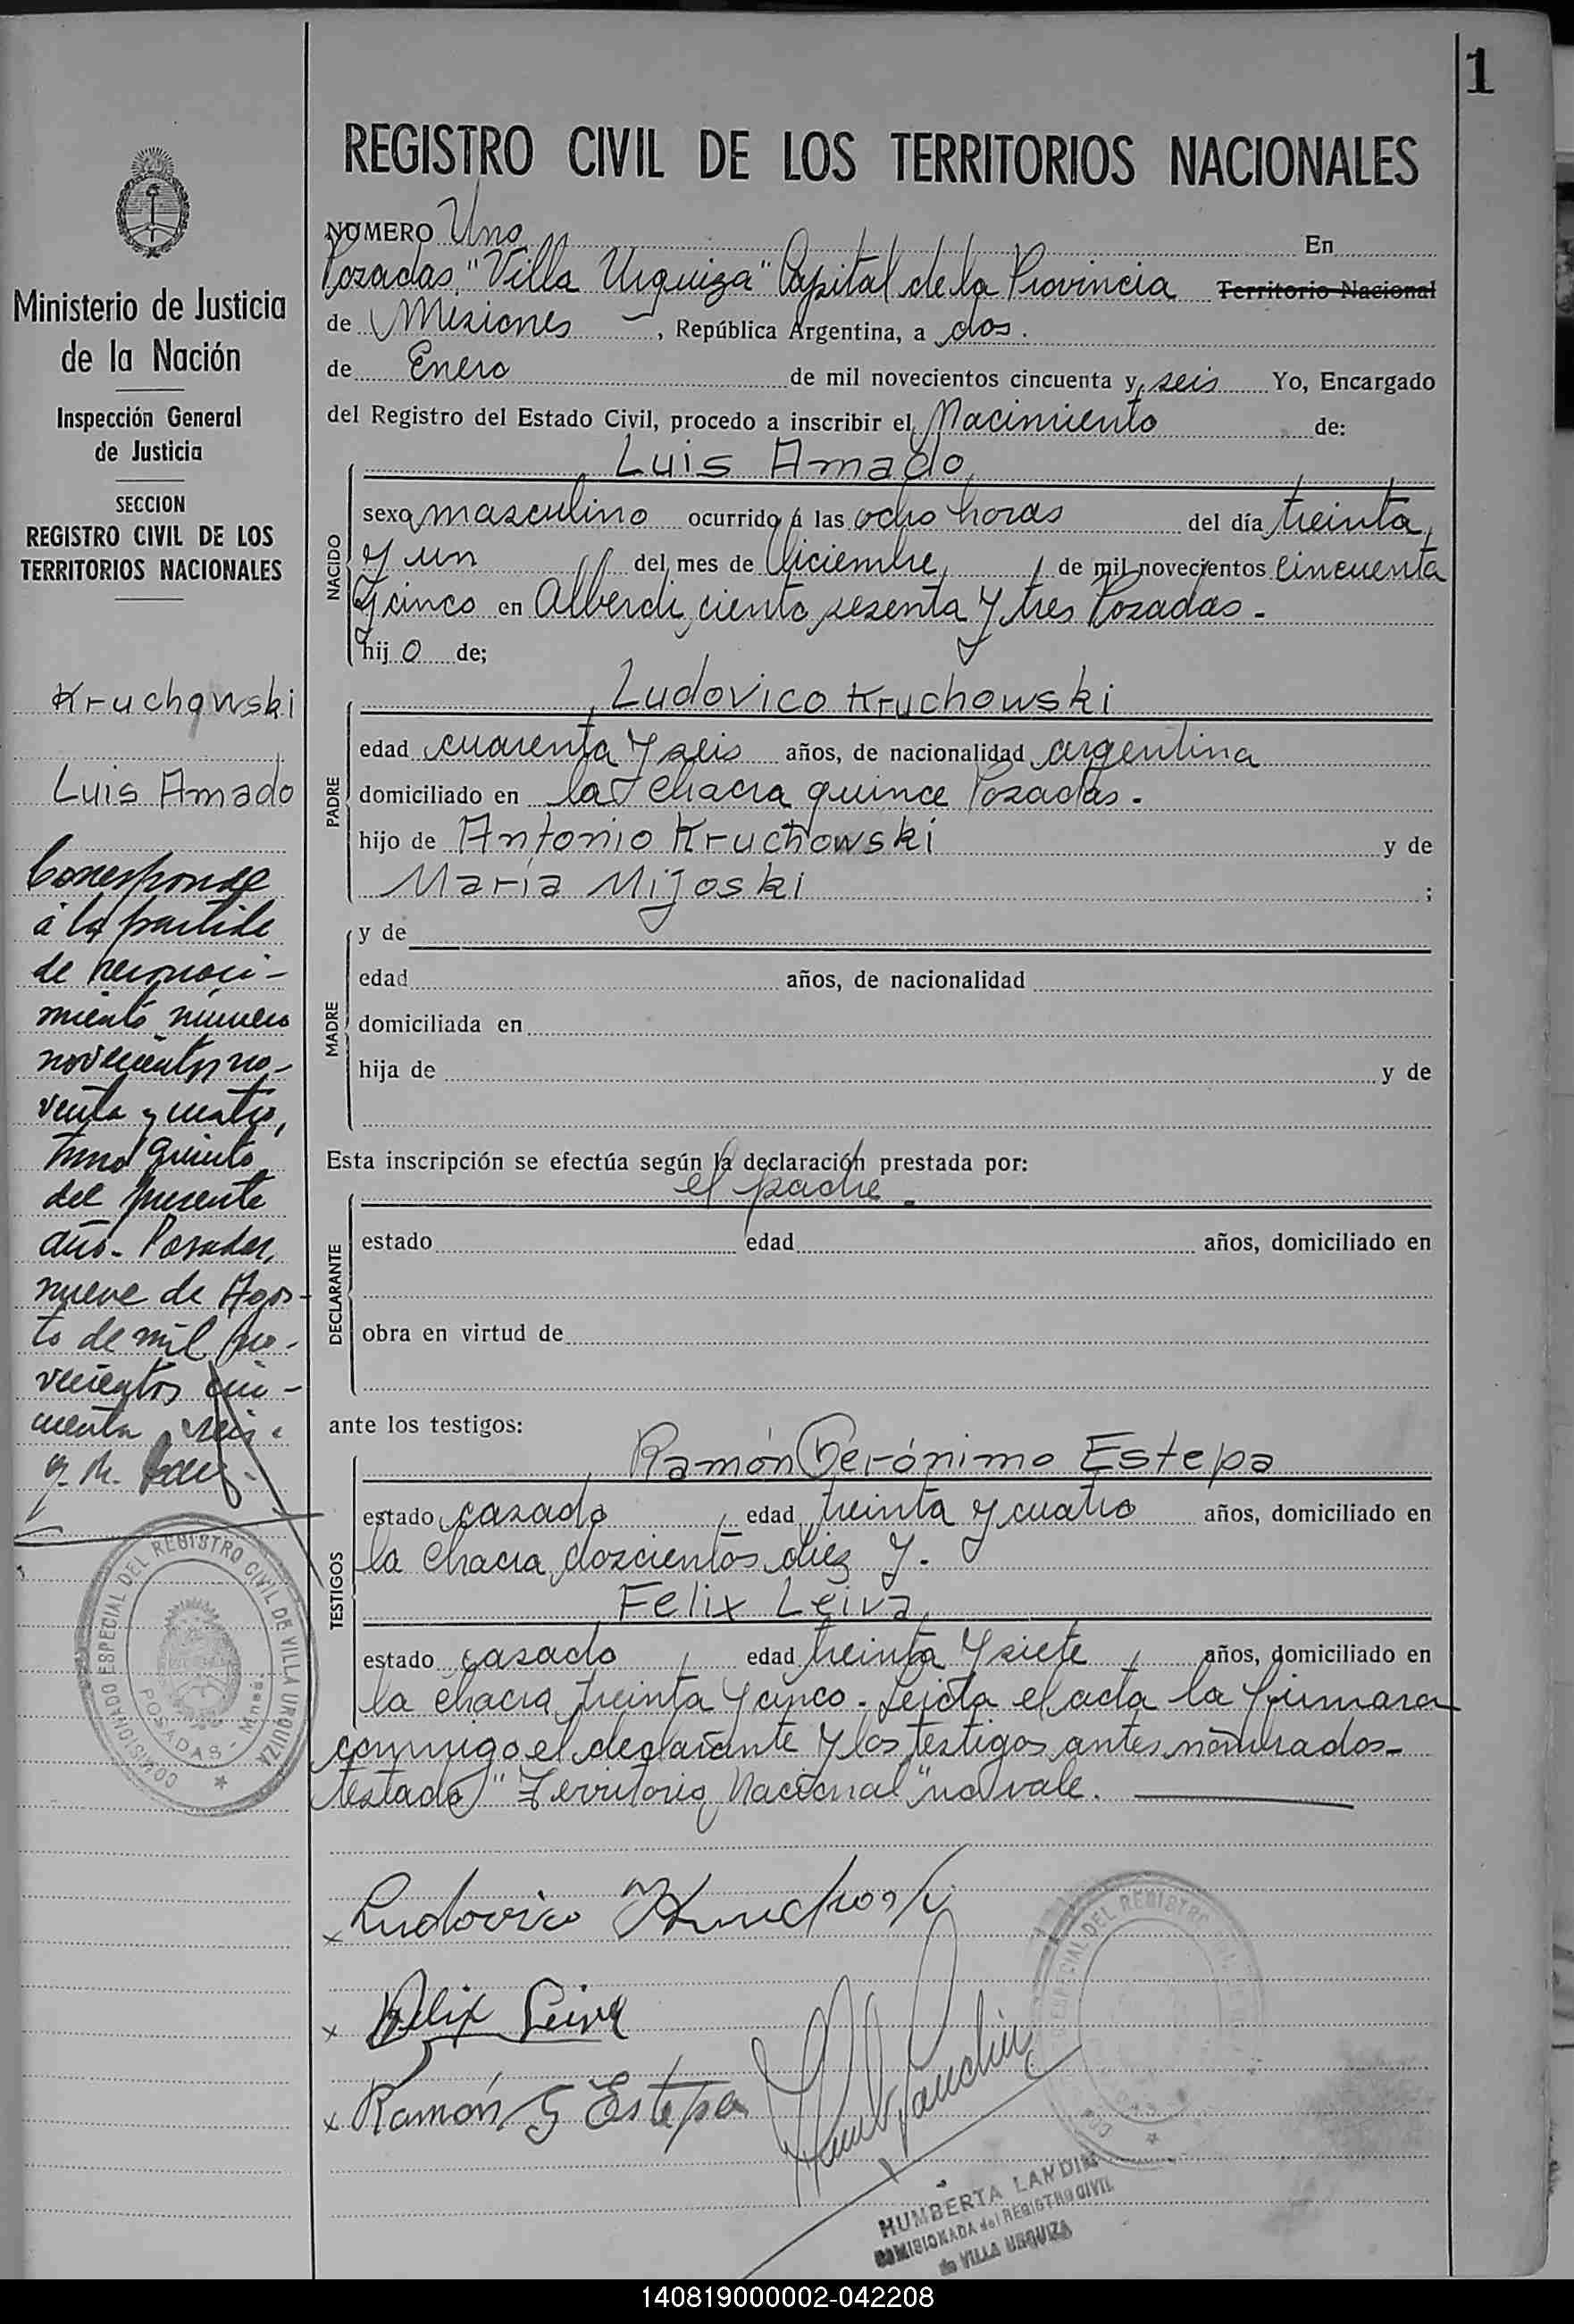 1
REGISTRO CIVIL DE LOS TERRITORIOS NACIONALES
Ministerio de Justicia
de la Nación
Inspección General
de Justicia
SECCION
REGISTRO CIVIL DE LOS
TERRITORIOS NACIONALES
Kruchowski
Luis Amado
Corresponde
a la partida
de reconoci-
miento número
novecientos no-
venta y cuatro,
tomo quinto
del presente
año. Posadas,
nueve de Agos-
to de mil no-
vecientos cin-
cuenta seis.
COMISIONADO ESPECIAL DEL REGISTRO CIVIL DE VILLA URQUIZA
POSADAS - Mnes.
NÚMERO Uno En
Posadas, "Villa Urquiza" Capital de la Provincia Territorio Nacional
de Misiones, República Argentina, a dos.
de Enero de mil novecientos cincuenta y seis Yo, Encargado
del Registro del Estado Civil, procedo a inscribir el Nacimiento de:
NACIDO
Luis Amado
sexo masculino ocurrido a las ocho horas del día treinta
y un del mes de Diciembre, de mil novecientos cincuenta
y cinco en Alberdi ciento sesenta y tres Posadas.
hij o de;
PADRE
Ludovico Kruchowski
edad cuarenta y seis años, de nacionalidad argentina
domiciliado en la chacra quince Posadas.
hijo de Antonio Kruchowski y de
María Mijoski ;
MADRE
y de
edad años, de nacionalidad
domiciliada en
hija de y de
Esta inscripción se efectúa según la declaración prestada por:
DECLARANTE
el padre.
estado edad años, domiciliado en
obra en virtud de
ante los testigos:
TESTIGOS
Ramón Gerónimo Estepa
estado casado, edad treinta y cuatro años, domiciliado en
la chacra doscientos diez y.
Felix Leiva
estado casado, edad treinta y siete, años, domiciliado en
la chacra treinta y cinco. Leída el acta la firmaron
conmigo el declarante y los testigos antes nombrados-
testado "Territorio Nacional" no vale.
Ludovico Kruchoski
x Felix Leiva
x Ramón G Estepa
HUMBERTA LANDIN
COMISIONADA del REGISTRO CIVIL
de VILLA URQUIZA
140819000002-042208